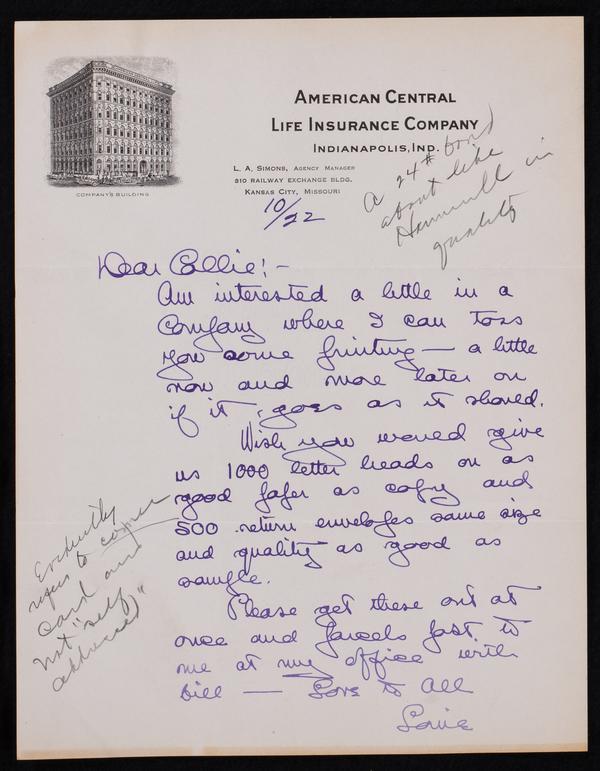 AMERICAN CENTRAL
LIFE INSURANCE COMPANY
INDIANAPOLIS, IND.
L. A. SIMONS, AGENCY MANAGER
210 RAILWAY EXCHANGE BLDG.
KANSAS CITY, MISSOURI
COMPANY'S BUILDING
A 24# bond
about like
Hammermill in
quality
10/22
Dear Collie:-
Am interested a little in a
company where I can toss
you some printing — a little
now and more later on
if it goes as it should.
Wish you would give
us 1000 letter heads on as
good paper as copy and
500 return envelopes same size
and quality as good as
sample.
Please get these out at
once and parcels post to
me at my office with
bill — Love to All
Louie
Evidently
refers to corner
card and
not "self
addressed"